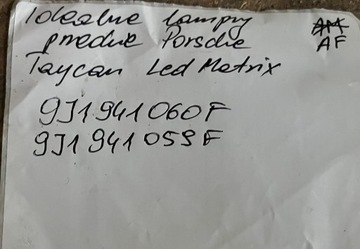 Idealne lampy
przednie Porsche AF
Taycan Led Matrix
9J1941060F
9J1941059F